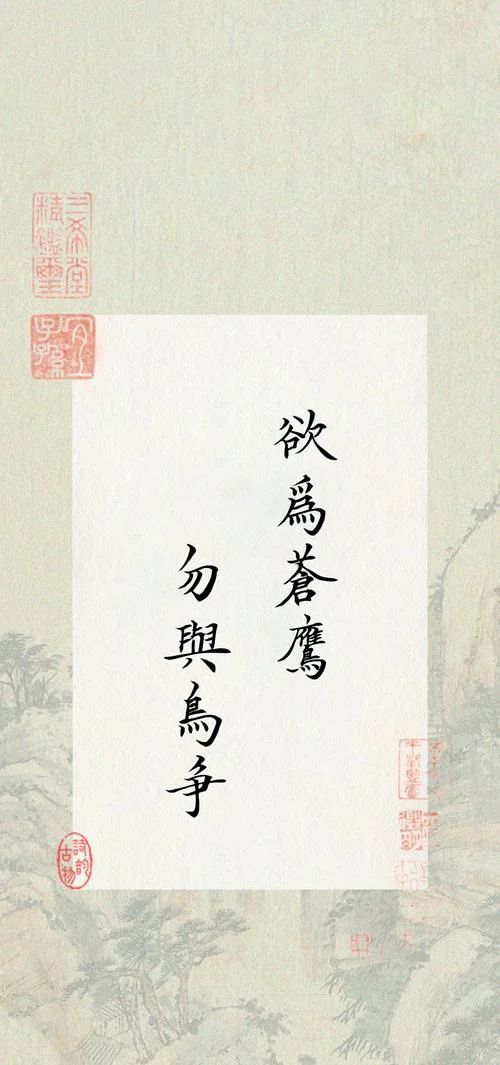 欲爲蒼鷹
勿與鳥争
三希堂
精鑑璽
宜子孫
詩韵
古物